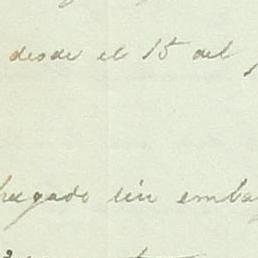 desde el 15 del
hagado sin emba